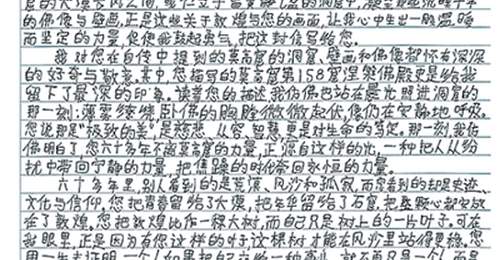 的佛像与壁画,正是这些关于敦煌与您的画面,让我心中生出一股温暖
而坚定的力量,促使我鼓起勇气,把这封信写给您。
我对您在自传中提到的莫高窟的洞窟、壁画和佛像都怀有深深
的好奇与敬意。其中,您描写的莫高窟第158窟涅槃佛殿更是给我
留下了最深的印象。读着您的描述,我仿佛也站在晨光照进洞窟的
那一刻:薄雾缭绕,卧佛的胸膛微微起伏,像仍在安静地呼吸。
您说那是“极致的美”,是慈悲、从容、智慧,更是对生命的笃定。那一刻,我仿
佛明白了,您六十多年不离莫高窟的力量,正源自这样的光,一种把人从纷
扰中带回宁静的力量,把焦躁的时代牵回永恒的力量。
六十多年里,别人看到的是荒漠、风沙和孤寂,而您看到的却是史迹、
文化与信仰。您把青春留给了大漠,把年华留给了石窟,把整颗心都安放
在了敦煌。您把敦煌比作一棵大树,而自己只是树上的一片叶子。可在
我眼里,正是因为有您这样的叶子,这棵树才能在风沙里站得更稳。您
用一生去证明,一个人如果把自己